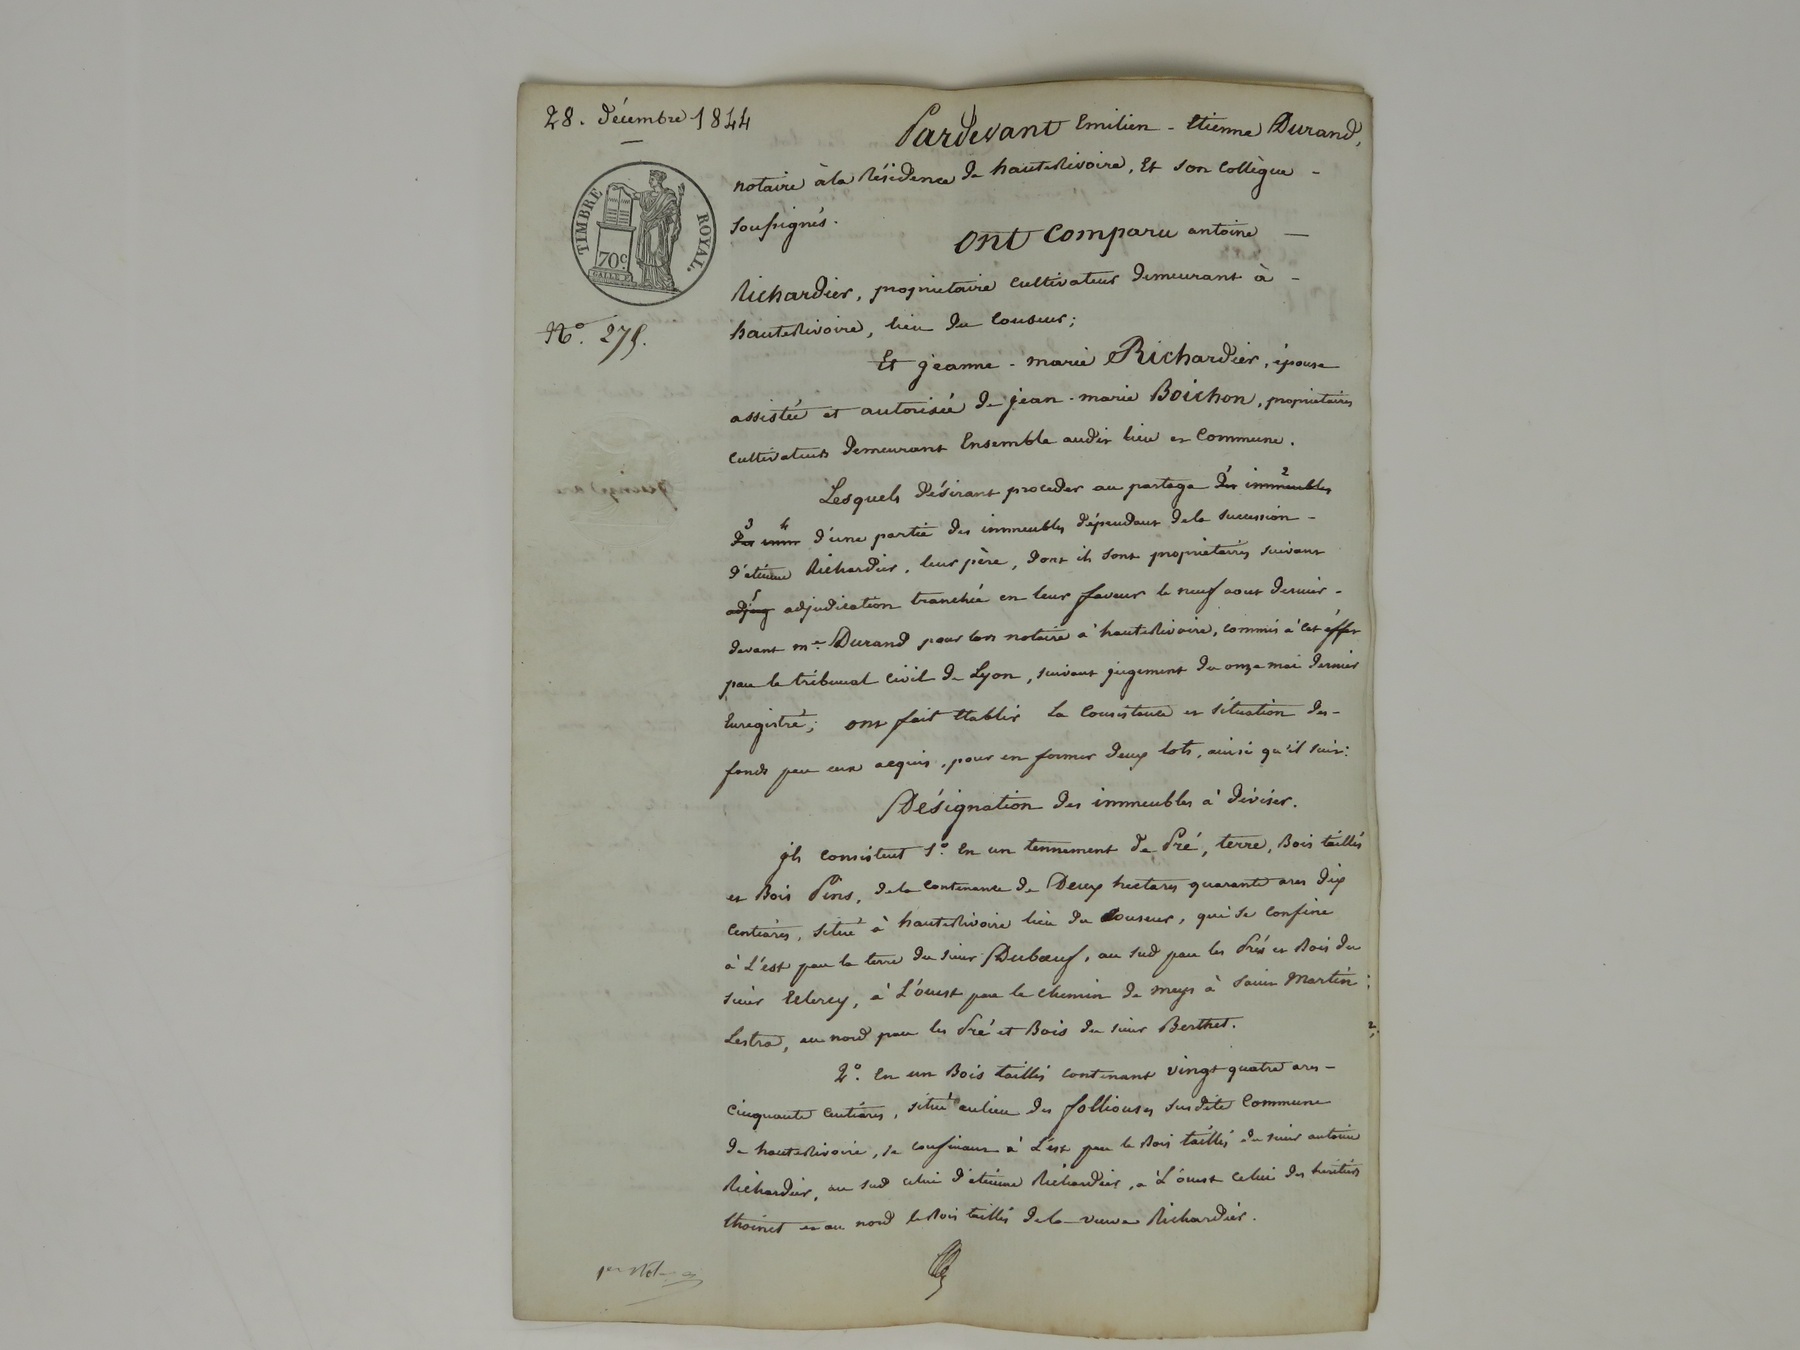 28. Décembre 1844
Pardevant Emilien - Etienne Durand,
notaire à la Résidence de hauterivoire, Et son Collègue -
soussignés.
TIMBRE ROYAL.
70c.
Ont Comparu antoine -
Richardier, proprietaire cultivateur demeurant à -
hauterivoire, lieu du Couseur;
N° 275.
Et jeanne - marie Richardier, épouse
assistée et autorisée de jean - marie Boichon, proprietaires
Cultivateurs demeurant Ensemble audit lieu et Commune.
Lesquels désirant proceder au partage des immeubles
des imm d'une partie des immeubles dépendant dela succession -
d'étienne Richardier, leur père, dont ils sont propriétaires suivant
adjug adjudication tranchée en leur faveur le neuf aout dernier -
devant me. Durand pour lors notaire à hauterivoire, commis à cet effet
par le tribunal Civil de Lyon, suivant jugement du onze mai dernier
Enregistré; ont fait Etablir La Consistance et situation des -
fonds par eux acquis, pour en former deux lots, ainsi qu'il suit:
Désignation des immeubles à diviser.
jls consistent 1° En un tennement de Pré, terre, Bois taillis
et Bois Pins, dela Contenance de Deux hectares quarante ares dix
Centiares, situé à hauterivoire lieu du Couseur, qui se confine
à L'est par la terre du sieur Dubœuf, au sud par les Prés et Bois du
sieur , à L'ouest par le chemin de meys à Saint Martin
Lestra, au nord par les Pré et Bois du sieur Berthet.
2°. En un Bois taillis contenant vingt quatre ares -
Cinquante centiares, situé au lieu des folliouses susdite Commune
de hauterivoire, se confinant à L'est par le Bois taillis du sieur antoine
Richardier, au sud celui d'étienne Richardier, à L'ouest celui des heritiers
thoinet et au nord le Bois taillis dela veuve Richardier.